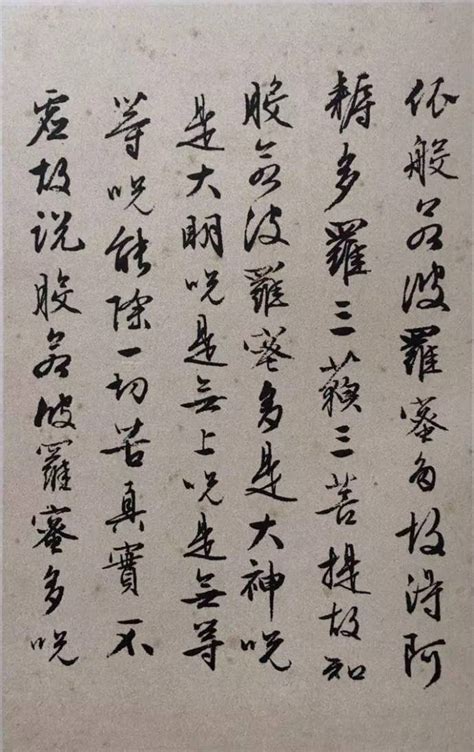 依般若波羅蜜多故得阿
耨多羅三藐三菩提故知
般若波羅蜜多是大神咒
是大明咒是無上咒是無等
等咒能除一切苦真實不
虛故說般若波羅蜜多咒